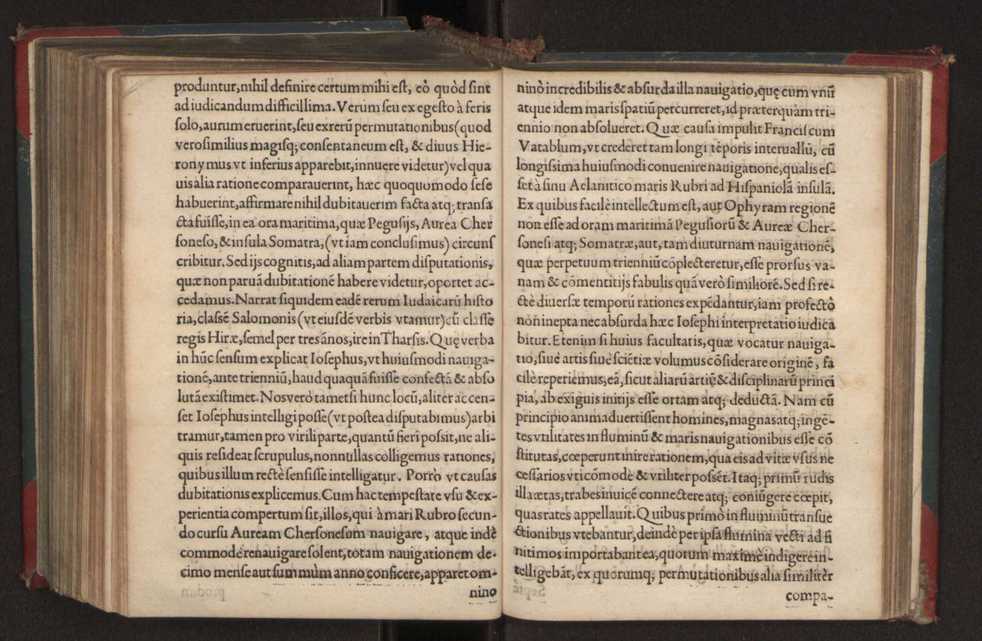 produntur, nihil definire certum mihi est, eò quòd sint
ad iudicandum difficillima. Verùm seu ex egesto à feris
solo, aurum eruerint, seu ex rerũ permutationibus (quod
verosimilius magisq; consentaneum est, & diuus Hie-
ronymus vt inferius apparebit, innuere videtur) vel qua
uis alia ratione comparauerint, hæc quoquomodo sese
habuerint, affirmare nihil dubitauerim facta atq; transa
cta fuisse, in ea ora maritima, quæ Pegusijs, Aurea Cher
soneso, & insula Somatra, (vt iam conclusimus) circunf
cribitur. Sed ijs cognitis, ad aliam partem disputationis,
quæ non paruã dubitationẽ habere videtur, oportet ac-
cedamus. Narrat siquidem eadẽ rerum Iudaicarũ histo
ria, classẽ Salomonis (vt eiusdẽ verbis vtamur) cũ classe
regis Hiræ, semel per tres ãnos, ire in Tharsis. Quę verba
in hũc sensum explicat Iosephus, vt huiusmodi nauiga-
tionẽ, ante trienniũ, haud quaquã fuisse confectã & abso
lutã existimet. Nos verò tametsi hunc locũ, aliter ac cen-
set Iosephus intelligi posse (vt postea disputabimus) arbi
tramur, tamen pro virili parte, quantũ fieri possit, ne ali-
quis resideat scrupulus, nonnullas colligemus rationes,
quibus illum rectè sensisse intelligatur. Porrò vt causas
dubitationis explicemus. Cum hac tempestate vsu & ex-
perientia compertum sit, illos, qui à mari Rubro secun-
do cursu Auream Chersonesum nauigare, atque indè
commodè renauigare solent, totam nauigationem de-
cimo mense aut summùm anno conficere, apparet om-
nino
ninò incredibilis & absurda illa nauigatio, quę cum vnũ
atque idem maris spatiũ percurreret, id præterquàm tri-
ennio non absolueret. Quæ causa impulit Franciscum
Vatablum, vt crederet tam longi tẽporis interuallũ, cũ
longissima huiusmodi conuenire nauigatione, qualis es-
set à sinu Aelanitico maris Rubri ad Hispaniolã insulã.
Ex quibus facilè intellectum est, aut Ophyram regionẽ
non esse ad oram maritimã Pegusiorũ & Aureæ Cher-
sonesi atq; Somatræ, aut, tam diuturnam nauigationẽ,
quæ perpetuum trienniũ cõplecteretur, esse prorsus va-
nam & cõmentitijs fabulis quã verò similiorẽ. Sed si re-
ctè diuersæ temporũ rationes expẽdantur, iam profectò
nõ inepta nec absurda hæc Iosephi interpretatio iudica
bitur. Etenim si huius facultatis, quæ vocatur nauiga-
tio, siuè artis siuè sciẽtiæ volumus cõsiderare originẽ, fa
cilè reperiemus, eã, sicut aliarũ artiũ & disciplinarũ princi
pia, ab exiguis initijs esse ortam atq; deductã. Nam cũ
principio animaduertissent homines, magnas atq; ingẽ-
tes vtilitates in fluminũ & maris nauigationibus esse cõ
stitutas, cœperunt inire rationem, qua eis ad vitæ vsus ne
cessarios vti cõmodè & vtiliter possẽt. Itaq; primũ rudis
illa ætas, trabes inuicẽ connectere atq; coniũgere cœpit,
quas rates appellauit. Quibus primò in fluminũ transue
ctionibus vtebantur, deindè per ipsa flumina vecti ad fi
nitimos importabant ea, quorum maximè indigere in-
telligebãt, ex quorumq; permutationibus alia similitèr
compa-